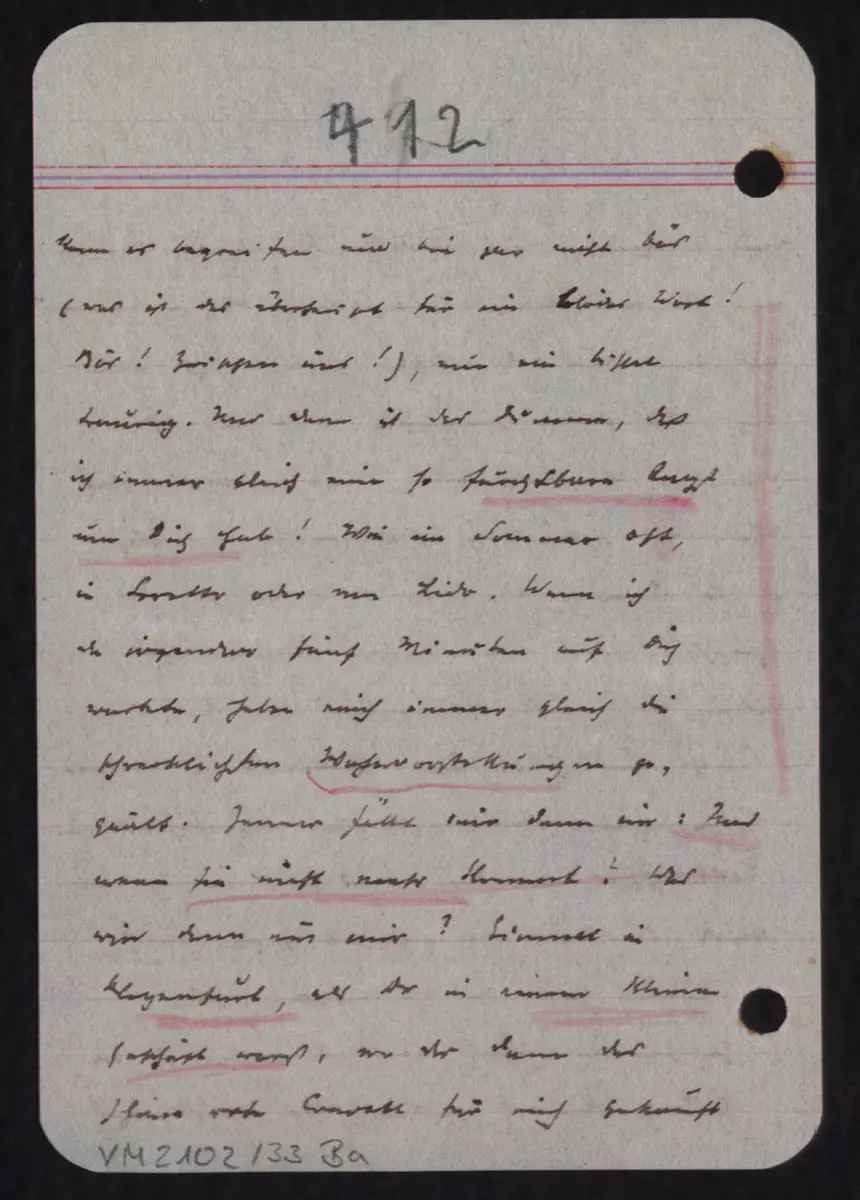 412
kann es begreifen und bin gar nicht bös
(was ist das überhaupt für ein blödes Wort!
Bös! Zwischen uns!), nur ein bissel
traurig. Und dann ist das Dumme, daß
ich immer gleich eine so furchtbare Angst
um Dich habe! Wie im Sommer oft,
in Loretto oder am Lido. Wenn ich
da irgendwo fünf Minuten auf Dich
wartete, haben mich immer gleich die
schrecklichsten Wahnvorstellungen ge-
quält. Immer fällt mir dann ein: Und
wenn sie nicht mehr kommt? Was
wird dann aus mir? Einmal in
Klagenfurt, als Du in einem kleinen
Geschäft warst, wo Du dann das
schöne rote Cravatl für mich gekauft
VM 2102 /33 Ba